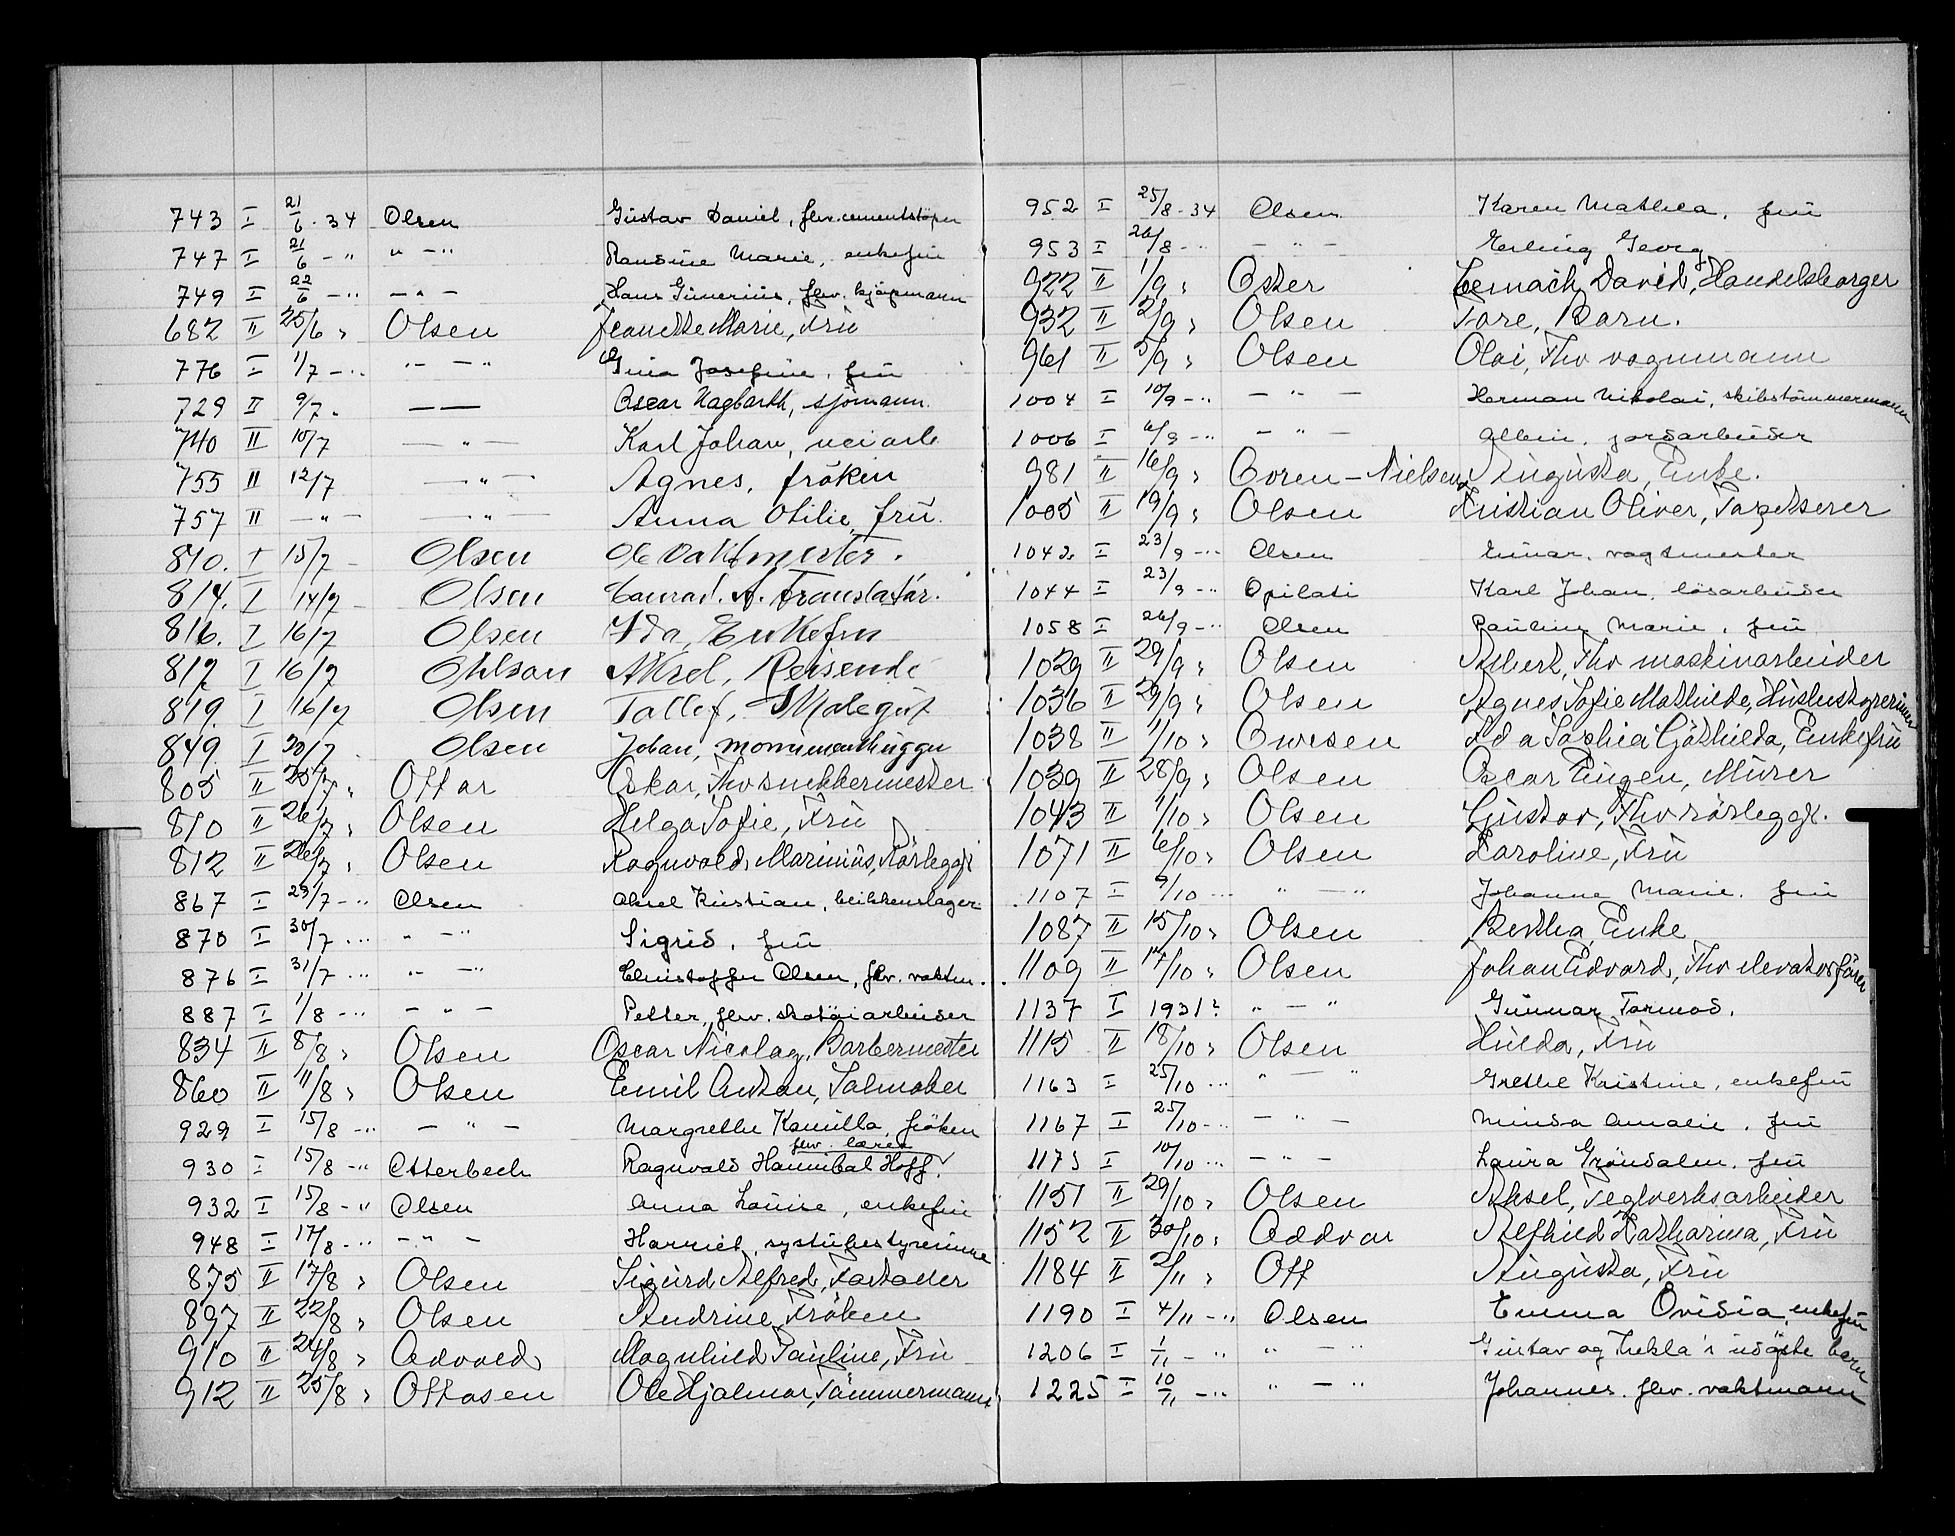 743 I 21/6 - 34 Olsen Gustav Daniel, fhv. cementstöper
747 I 21/6 - " " - " Marie, enkefru
749 I 22/6 - " - " - Hans Gunerius, fhv. kjöpmann
682 II 25/6 " Olsen Jeanette Marie, Fru
776 I 1/7 - " " - " Gina Josefine, fru
729 II 9/7 - — — Oscar Hagbarth, sjömann.
740 II 10/7 — " — Karl Johan, veiarb
755 II 12/7 — " — Agnes, fröken
757 II — " — — " — Anna Otilie, fru.
810. I 15/7 - Olsen Vaktmester.
814. I 14/7 - Olsen Conrad. A. Translatör.
816. I 16/7 Olsen Ida, Enkefru
817 I 16/7 Ohlson Aksel, Reisende
819. I 16/7 Olsen Tallef, Skolegut
849. I 20/7 Olsen Johan, monumenthugger
805 II 25/7 " Ottar Oskar, Fhv snekkermester
810 II 26/7 " Olsen Helga Sofie, Fru
812 II 26/7 " Olsen Ragnvald Marinius, Rörleggr
867 I 29/7 - " Olsen Aksel Kristian, blikkenslager
870 I 30/7 - " " - " Sigrid, fru
876 I 31/7 - " " - " Christoffer Olsen, fhv. vaktm.
887 I 1/8 - " - " - Petter, fhv. skotöiarbeider
834 II 8/8 " Olsen Oscar Nicolay, Barbermester
860 II 11/8 " Olsen Emil Anton, Salmaker
929 I 15/8 - " - " - Margrethe Kamilla, fröken
fhv. lærer
930 I 15/8 - " Otterbech Ragnvald Hannibal Hoff
932 I 15/8 - " Olsen Anna Louise, enkefru
948 I 17/8 - " - " - Harriet, systuebestyrerinne
875 II 17/8 " Olsen Sigurd Alfred,
897 II 22/8 " Olsen Andrine, Fröken
910 II 24/8 " Odvold Magnhild Pauline, Fru
912 II 25/8 " Ottosen Ole Hjalmar, Tömmermann
952 I 25/8 - 34 Olsen Karen Mathea, fru
953 I 26/8 - " - " - Erling Georg
922 II 1/9 " Oster David, Handelsborger
932 II 2/9 " Olsen Tore, Barn.
961 II 5/9 " Olsen Olai, Fhv vognmann
1004 I 10/9 - " - " - Herman Nikolai, skibstömmermann
1006 I 6/9 - " - " - Albin, jordarbeider
981 II 16/9 " Oven-Nielsen, Augusta, Enke.
1005 II 19/9 " Olsen Kristian Oliver, Tapetserer
1042 I 23/9 - " Olsen Einar, vogtmester
1044 I 23/9 - " Opilati Karl Johan, lösarbeider
1058 I 26/9 - " Olsen Pauline Marie, fru
1029 II 29/9 " Olsen Albert, Fhv maskinarbeider
1036 II 29/9 " Olsen Agnes Sofie Mathilde, Husbestyrerinne
1038 II 1/10 " Owesen Ida Sophia Göthilda, Enkefru
1039 II 28/9 " Olsen Oscar Eugen, Murer
1043 II 1/10 " Olsen Gustav, Fhv rörleggr.
1071 II 6/10 " Olsen Karoline, Fru
1107 I 9/10 - " " — " Johanne Marie, fru
1087 II 15/10 " Olsen Bertha, Enke
1109 II 17/10 " Olsen Johan Edvard, Fhv elevatorförer
1137 I 1931? " - " Gunnar Tormod.
1115 II 18/10 " Olsen Hulda, Fru
1163 I 25/10 - " " — " Grethe Kristine, enkefru
1167 I 25/10 - " - " - Minda Amalie, fru
1175 I 10/10 - " - " - Laura Gröndalen, fru
1151 II 29/10 " Olsen Aksel, Teglverksarbeider
1152 II 30/10 " Oddvar Alfhild Katharina, Fru
1184 II 2/11 " Ott Augusta, Fru
1190 I 4/11 - " Olsen Emma Ovidia, enkefru
1206 I 1/11 - " " - " Gustav og Thekla's udöpte barn
1225 I 10/11 - " " - " Johannes, fhv. vaktmann